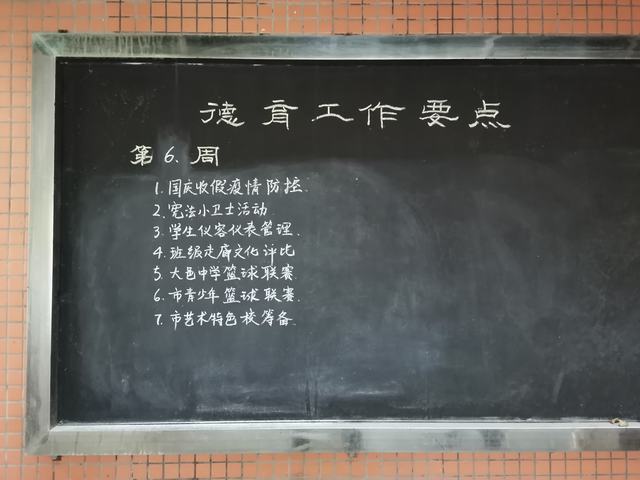 德育工作要点
第6周
1.国庆收假疫情防控.
2.宪法小卫士活动
3.学生仪容仪表管理.
4.班级走廊文化评比
5.大邑中学篮球联赛.
6.市青少年篮球联赛.
7.市艺术特色校筹备.